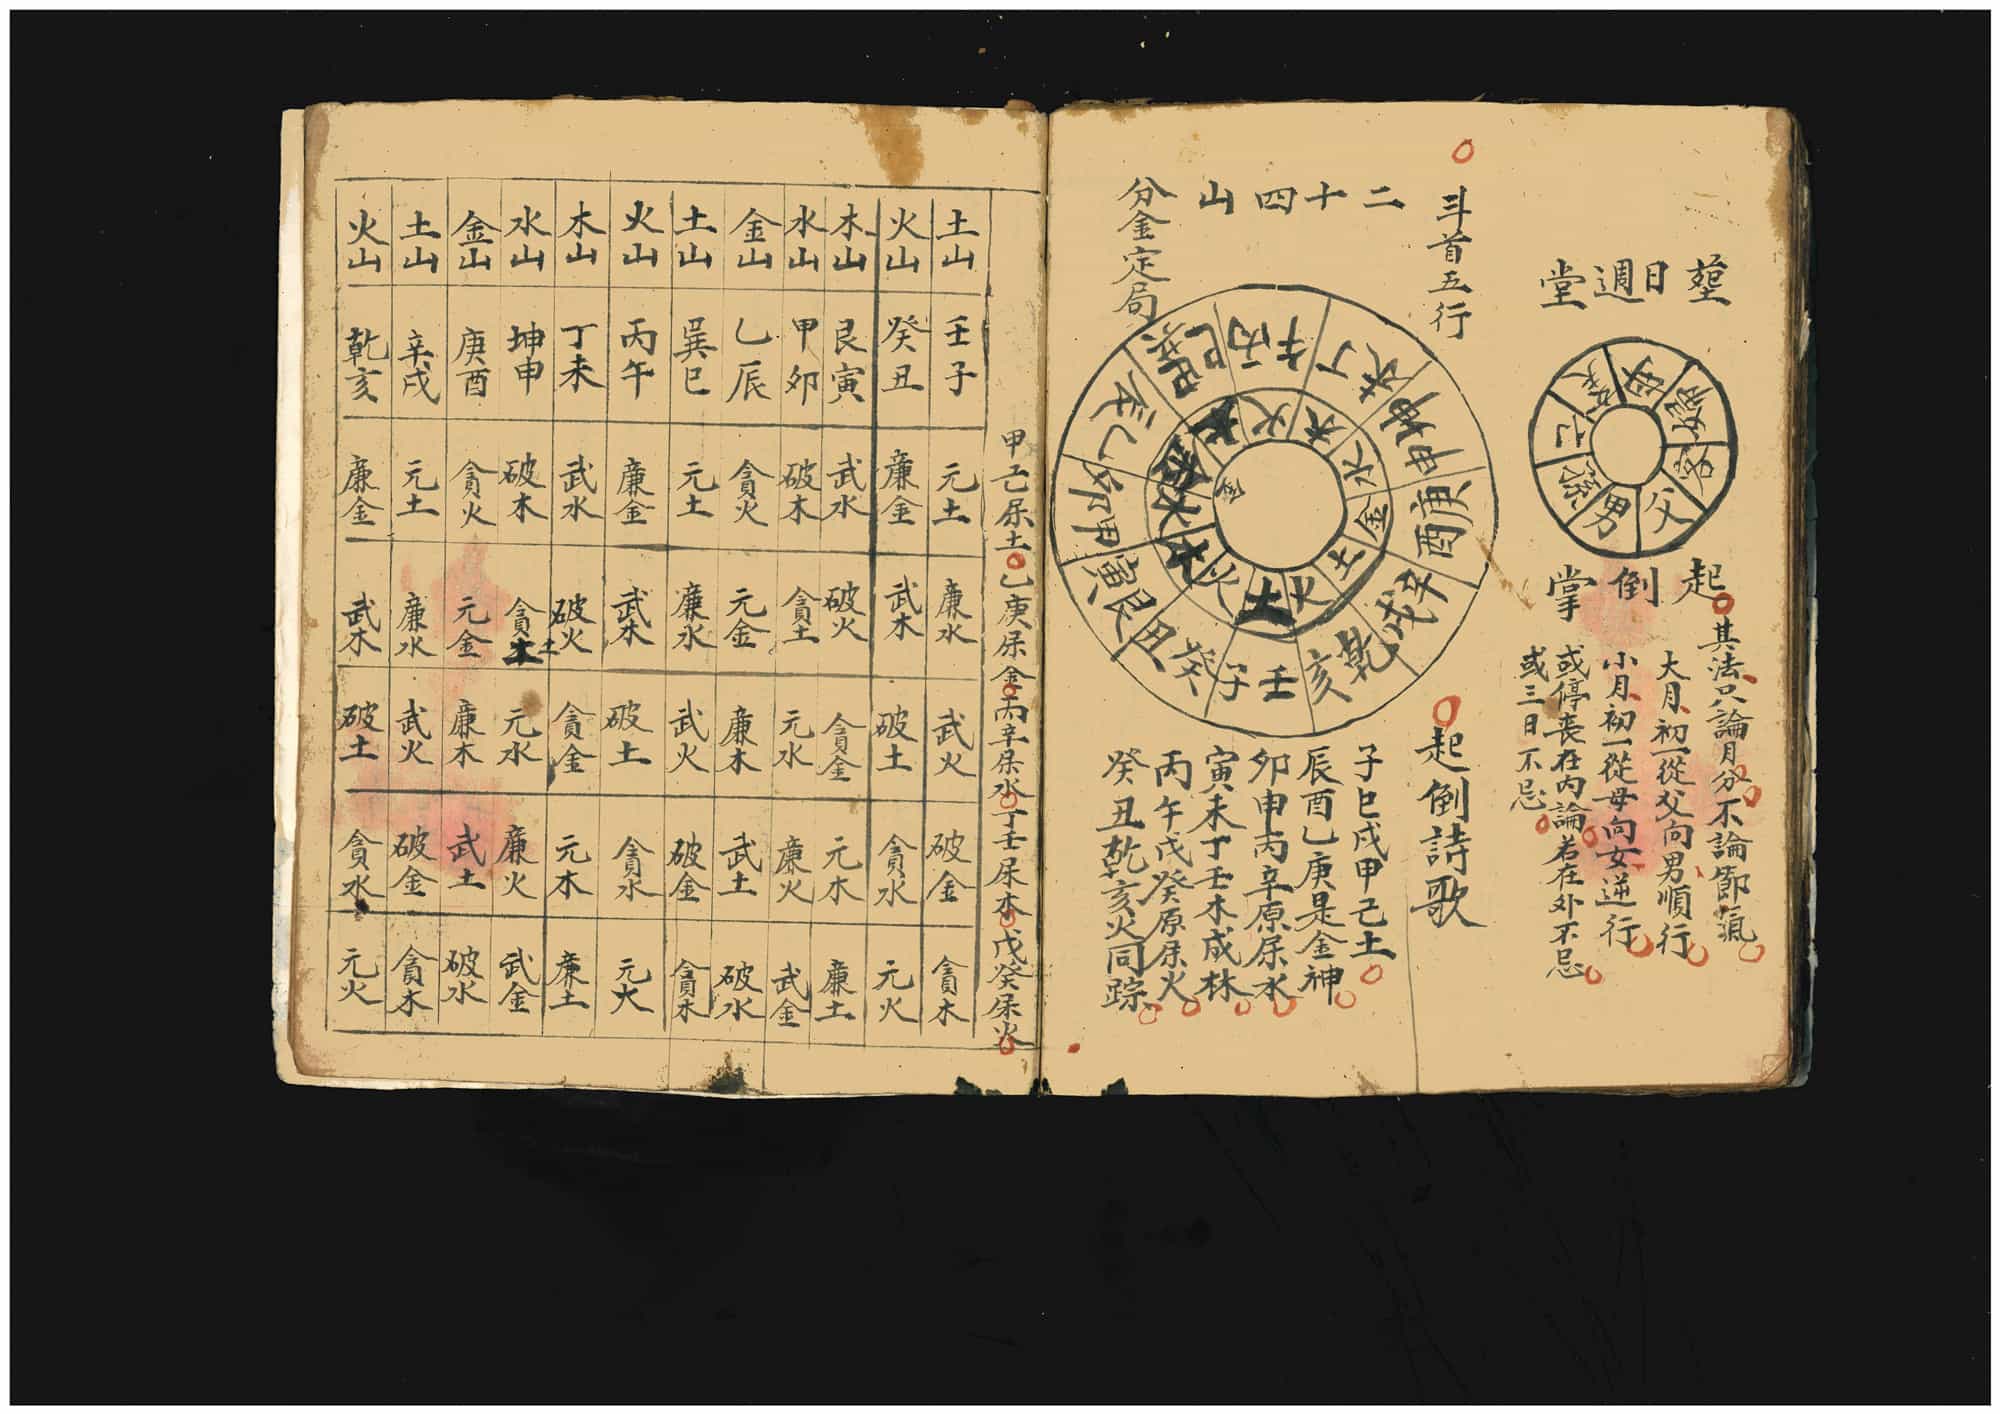 塟日週堂
父
男
母
起倒掌
其法只論月分不論節氣
大月初一從父向男順行
小月初一從母向女逆行
或停喪在內論若在外不忌
或三日不忌
斗首五行
二十四山
分金定局
壬子
癸丑
艮寅
甲卯
乙辰
巽巳
丙午
丁未
坤申
庚酉
辛戌
乾亥
土
火
木
水
金
土
火
木
水
金
土
火
起倒詩歌
子巳戌甲己土
辰酉乙庚是金神
卯申丙辛原属水
寅未丁壬木成林
丙午戊癸原属火
癸丑乾亥火同踪
甲己属土乙庚属金丙辛属水丁壬属木戊癸属火
土山 壬子 元土 廉水 武火 破金 貪木
火山 癸丑 廉金 武木 破土 貪水 元火
木山 艮寅 武水 破火 貪金 元木 廉土
水山 甲卯 破木 貪土 元水 廉火 武金
金山 乙辰 貪火 元金 廉木 武土 破水
土山 巽巳 元土 廉水 武火 破金 貪木
火山 丙午 廉金 武木 破土 貪水 元火
木山 丁未 武水 破火 貪金 元木 廉土
水山 坤申 破木 貪土 元水 廉火 武金
金山 庚酉 貪火 元金 廉木 武土 破水
土山 辛戌 元土 廉水 武火 破金 貪木
火山 乾亥 廉金 武木 破土 貪水 元火